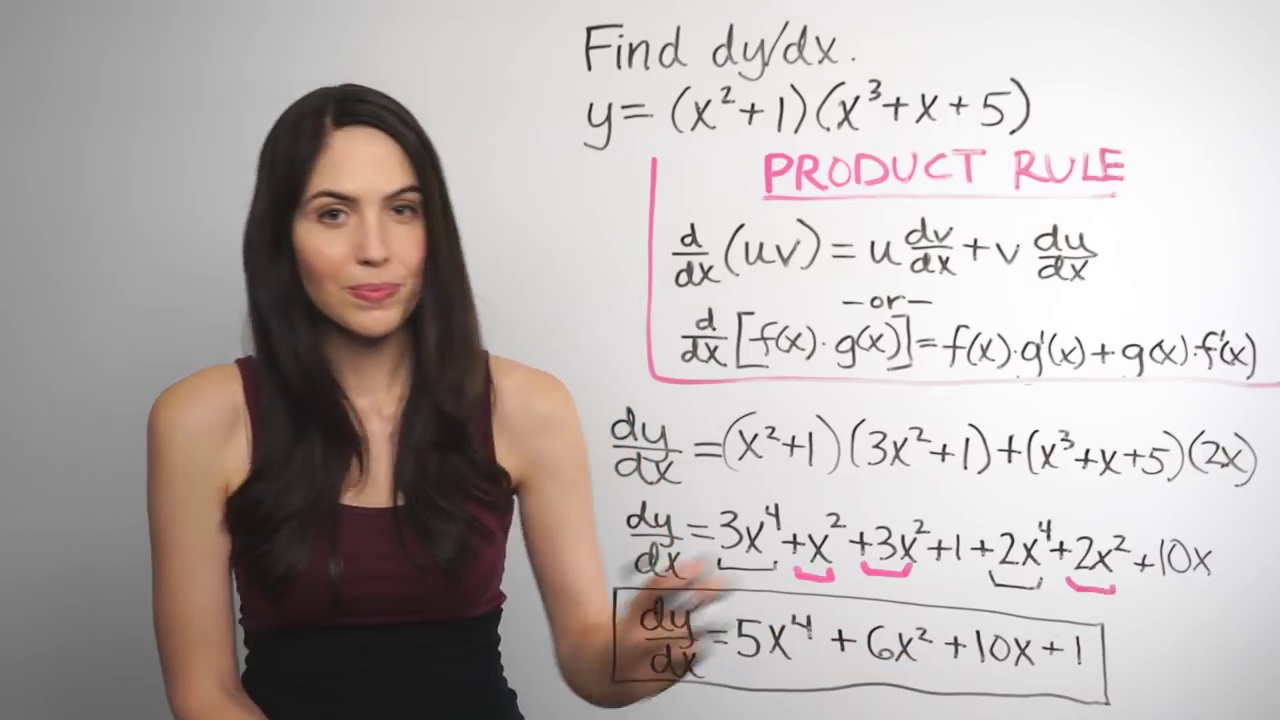 Find dy/dx.
y= (x²+1)(x³+x+5)
PRODUCT RULE
d/dx (uv) = u dv/dx + v du/dx
-or-
d/dx [f(x)·g(x)]=f(x)·g'(x)+g(x)·f'(x)
dy/dx =(x²+1)(3x²+1)+(x³+x+5)(2x)
dy/dx =3x⁴+x²+3x²+1+2x⁴+2x²+10x
dy/dx =5x⁴+6x²+10x+1